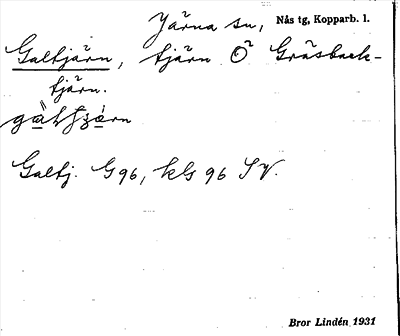 Järna sn, Nås tg, Kopparb. l.
Galtjärn, tjärn O² Gräsback-
tjärn.
Galtj. G96, kls 96 SV.
Bror Lindén 1931